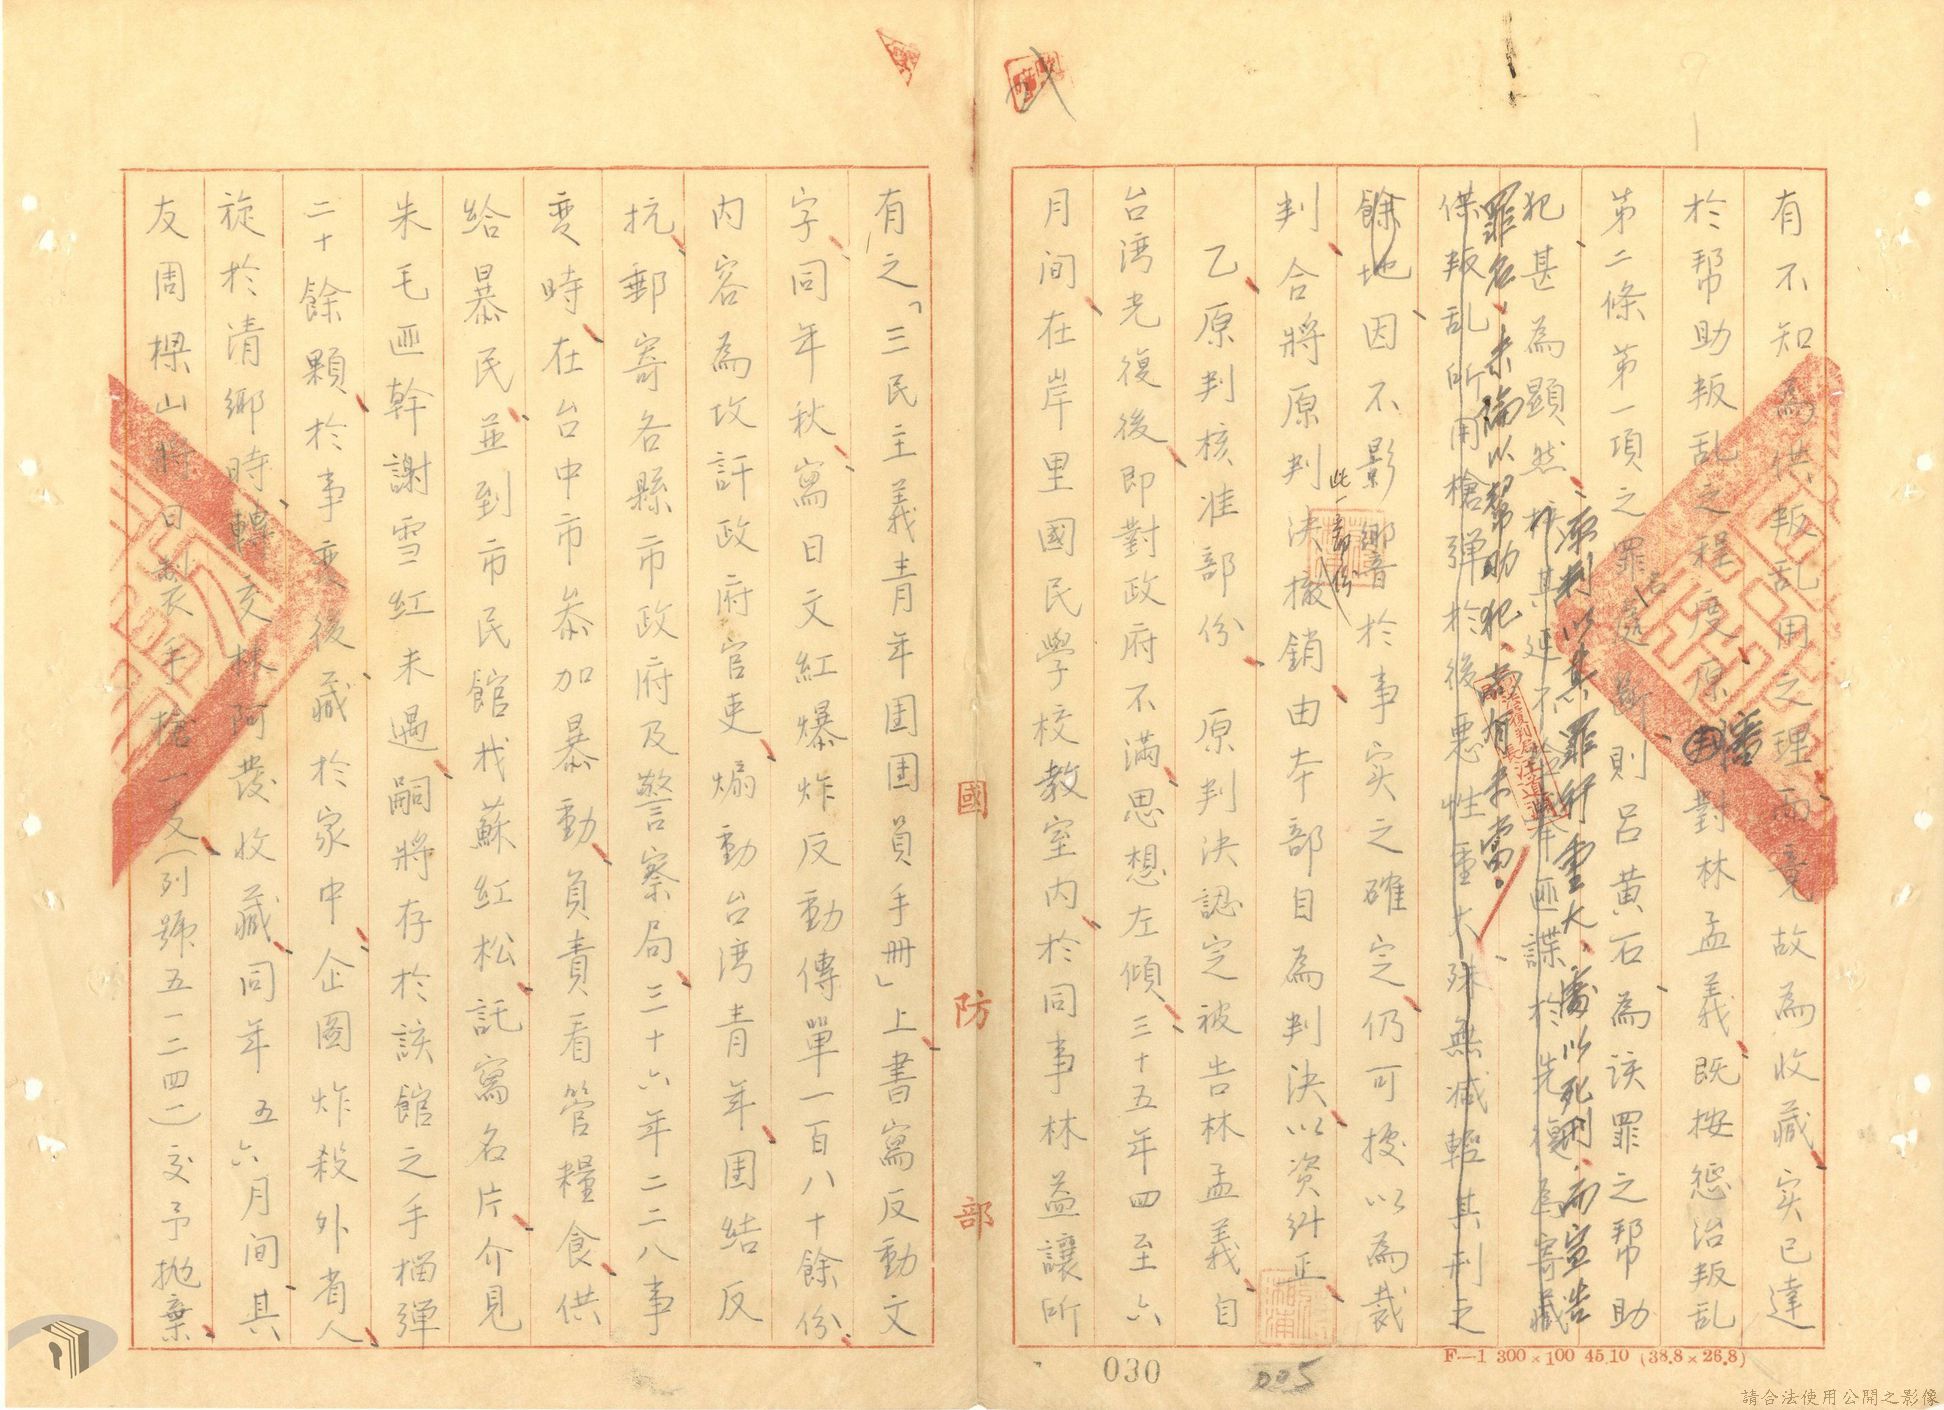 有不知為供叛乱用之理而竟故為收藏实已達
於帮助叛乱之程度原審對林孟義既按惩治叛乱
第二條第一項之罪名處斷則呂黄石為該罪之帮助
犯甚為顯然
原判以其罪行重大、處以死刑、而宣告
罪名、未論以幫助犯、尚有未當。
係叛乱所用槍弹於後惡性重大殊無减輕其刑之
餘地因不影響於事实之確定仍可據以為裁
判合將原判决此一部份撤銷由本部自為判决以资纠正
乙原判核准部份 原判决認定被告林孟義自
台湾光復後即對政府不滿思想左傾三十五年四至六
月间在岸里國民學校教室內於同事林益讓所
有之「三民主義青年团团員手冊」上書寫反動文
字同年秋寫日文紅爆炸反動傳單一百八十餘份
內容為攻訐政府官吏煽動台湾青年团結反
抗郵寄各縣市政府及警察局三十六年二二八事
变時在台中市参加暴動負責看管糧食供
給暴民並到市民館找蘇紅松託寫名片介見
朱毛匪幹謝雪紅未遇嗣將存於該館之手榴弹
二十餘顆於事变後藏於家中企圖炸殺外省人
旋於清鄉時轉交林阿發收藏同年五六月间其
友周樑山將日製手槍一支（列號五一二四二）交予抛棄
國防部
F—1 300×100 45.10 (38.8×26.8)
030
005
請合法使用公開之影像